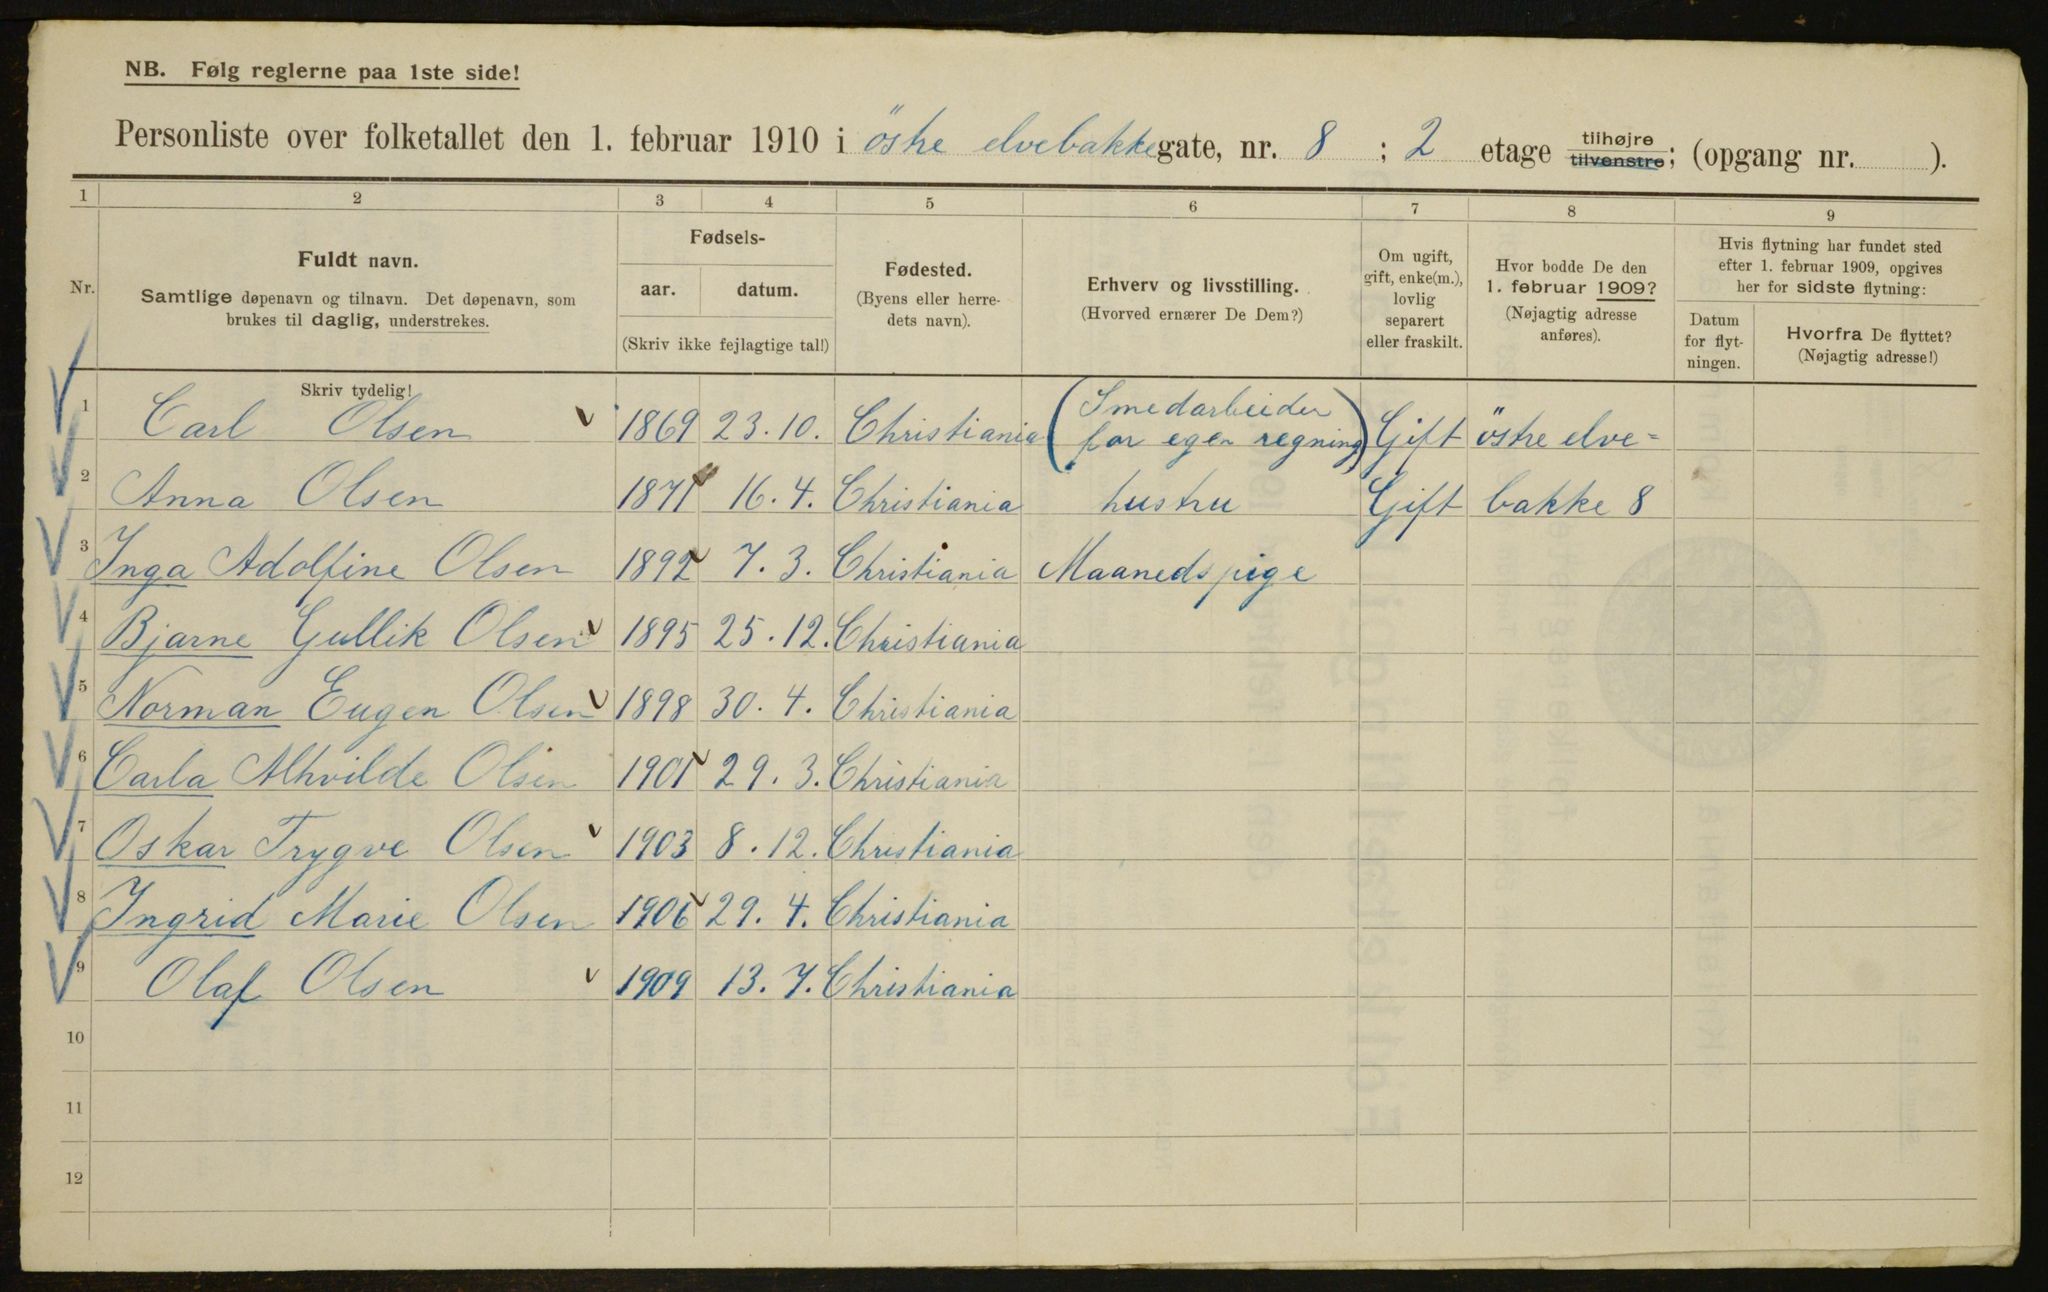 NB. Følg reglerne paa 1ste side!
Personliste over folketallet den 1. februar 1910 i östre elvebakkegate, nr. 8 ; 2 etage tilhøjre tilvenstre; (opgang nr. ).
1 2 3 4 5 6 7 8 9
Nr.
Fuldt navn.
Samtlige døpenavn og tilnavn. Det døpenavn, som
brukes til daglig, understrekes.
Fødsels-
aar. datum.
(Skriv ikke fejlagtige tal!)
Fødested.
(Byens eller herre-
dets navn).
Erhverv og livsstilling.
(Hvorved ernærer De Dem?)
Om ugift,
gift, enke(m.),
lovlig
separert
eller fraskilt.
Hvor bodde De den
1. februar 1909?
(Nøjagtig adresse
anføres).
Hvis flytning har fundet sted
efter 1. februar 1909, opgives
her for sidste flytning:
Datum
for flyt-
ningen.
Hvorfra De flyttet?
(Nøjagtig adresse!)
Skriv tydelig!
1 Carl Olsen 1869 23.10. Christiania (Smedarbeider for egen regning) Gift östre elve=
2 Anna Olsen 1871 16.4. Christiania hustru Gift bakke 8
3 Inga Adolfine Olsen 1892 7.3. Christiania Maanedspige
4 Bjarne Gullik Olsen 1895 25.12. Christiania
5 Norman Eugen Olsen 1898 30.4. Christiania
6 Carla Alhvilde Olsen 1901 29.3. Christiania
7 Oskar Trygve Olsen 1903 8.12. Christiania
8 Ingrid Marie Olsen 1906 29.4. Christiania
9 Olaf Olsen 1909 13.7. Christiania
10
11
12